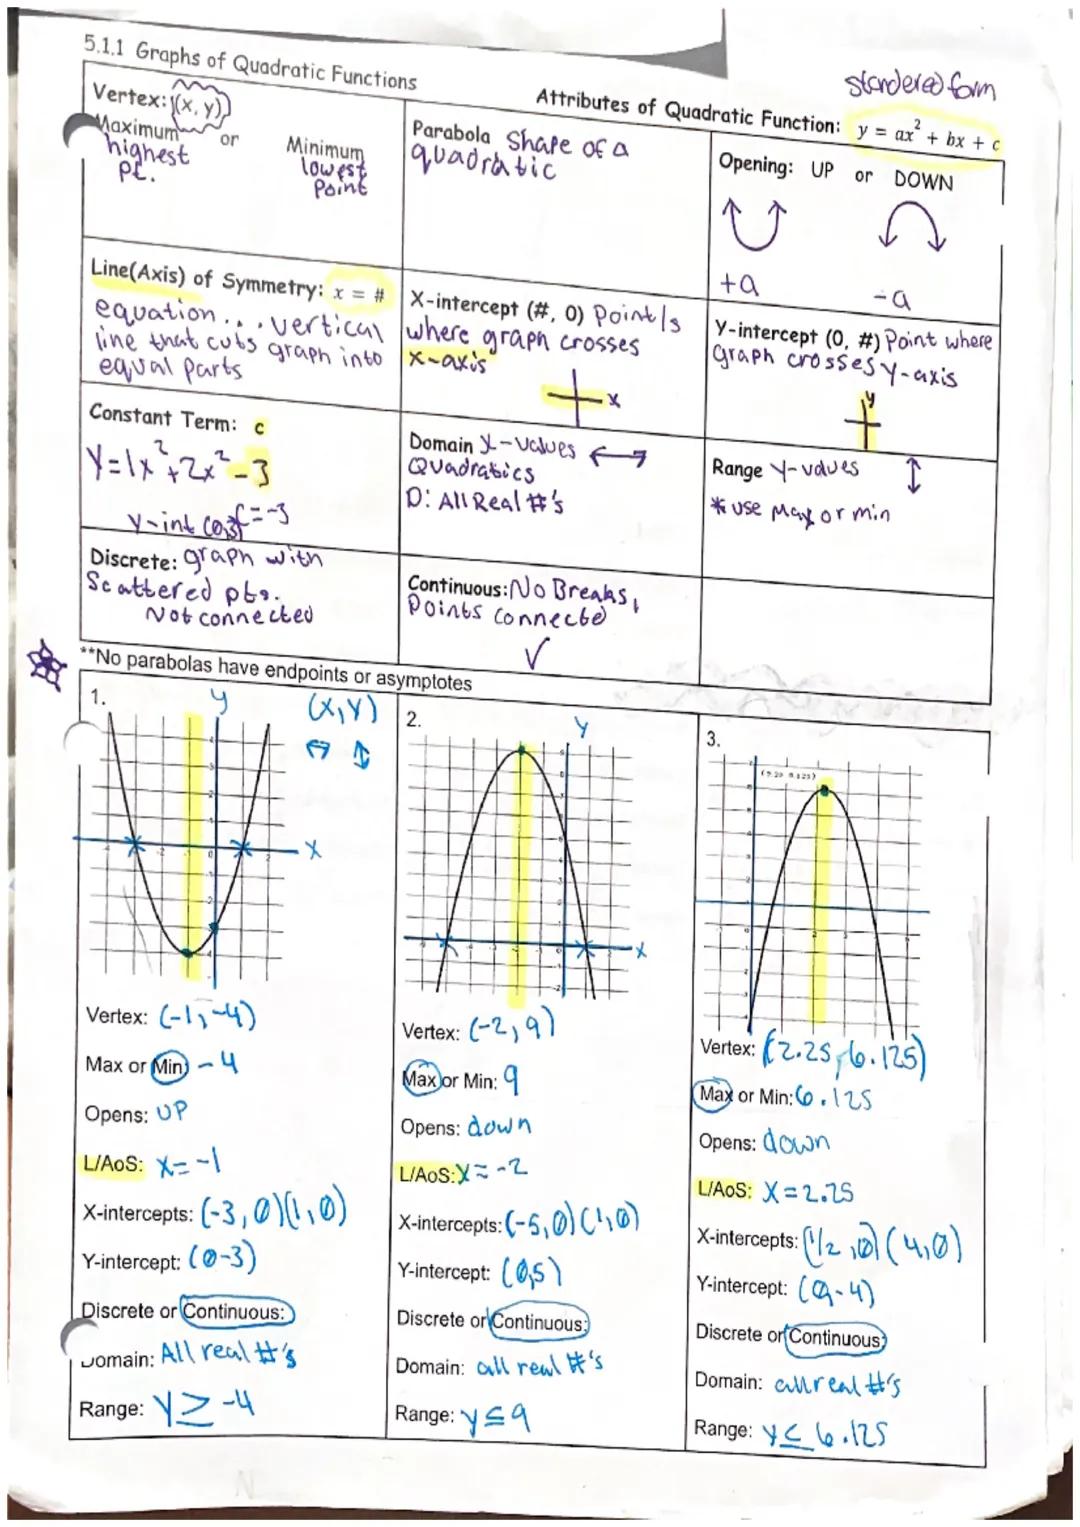 5.1.1 Graphs of Quadratic Functions
Attributes of Quadratic Function: y = ax² + bx + c
standered form
Vertex: (x, y)
Maximum or Minimum
highest pt.
lowest Point
Parabola Shape of a
quadratic
Opening: UP or DOWN
+a -a
Line(Axis) of Symmetry: x = #
equation... vertical
line that cuts graph into
equal parts
X-intercept (#, 0) Point/s
where graph crosses
x-axis
x
Y-intercept (0, #) Point where
graph crosses y-axis
y
Constant Term: c
y=1x²+2x²-3
y-int c=-3
Domain x-values
Quadratics
D: All Real #'s
Range y-values
*use Max or min
Discrete: graph with
Scattered pts.
Not connected
Continuous: No Breaks,
Points connected
**No parabolas have endpoints or asymptotes
1.
y
(x,y)
x
Vertex: (-1,-4)
Max or Min -4
Opens: UP
L/AoS: x=-1
X-intercepts: (-3,0)(1,0)
Y-intercept: (0-3)
Discrete or Continuous:
Domain: All real #'s
Range: y≥-4
2.
y
x
Vertex: (-2,9)
Max or Min: 9
Opens: down
L/AoS: x=-2
X-intercepts: (-5,0)(1,0)
Y-intercept: (0,5)
Discrete or Continuous:
Domain: all real #'s
Range: y≤9
3.
Vertex: (2.25,6.125)
Max or Min: 6.125
Opens: down
L/AoS: x=2.25
X-intercepts: (1/2,0)(4,0)
Y-intercept: (0,-4)
Discrete or Continuous
Domain: all real #'s
Range: y≤6.125